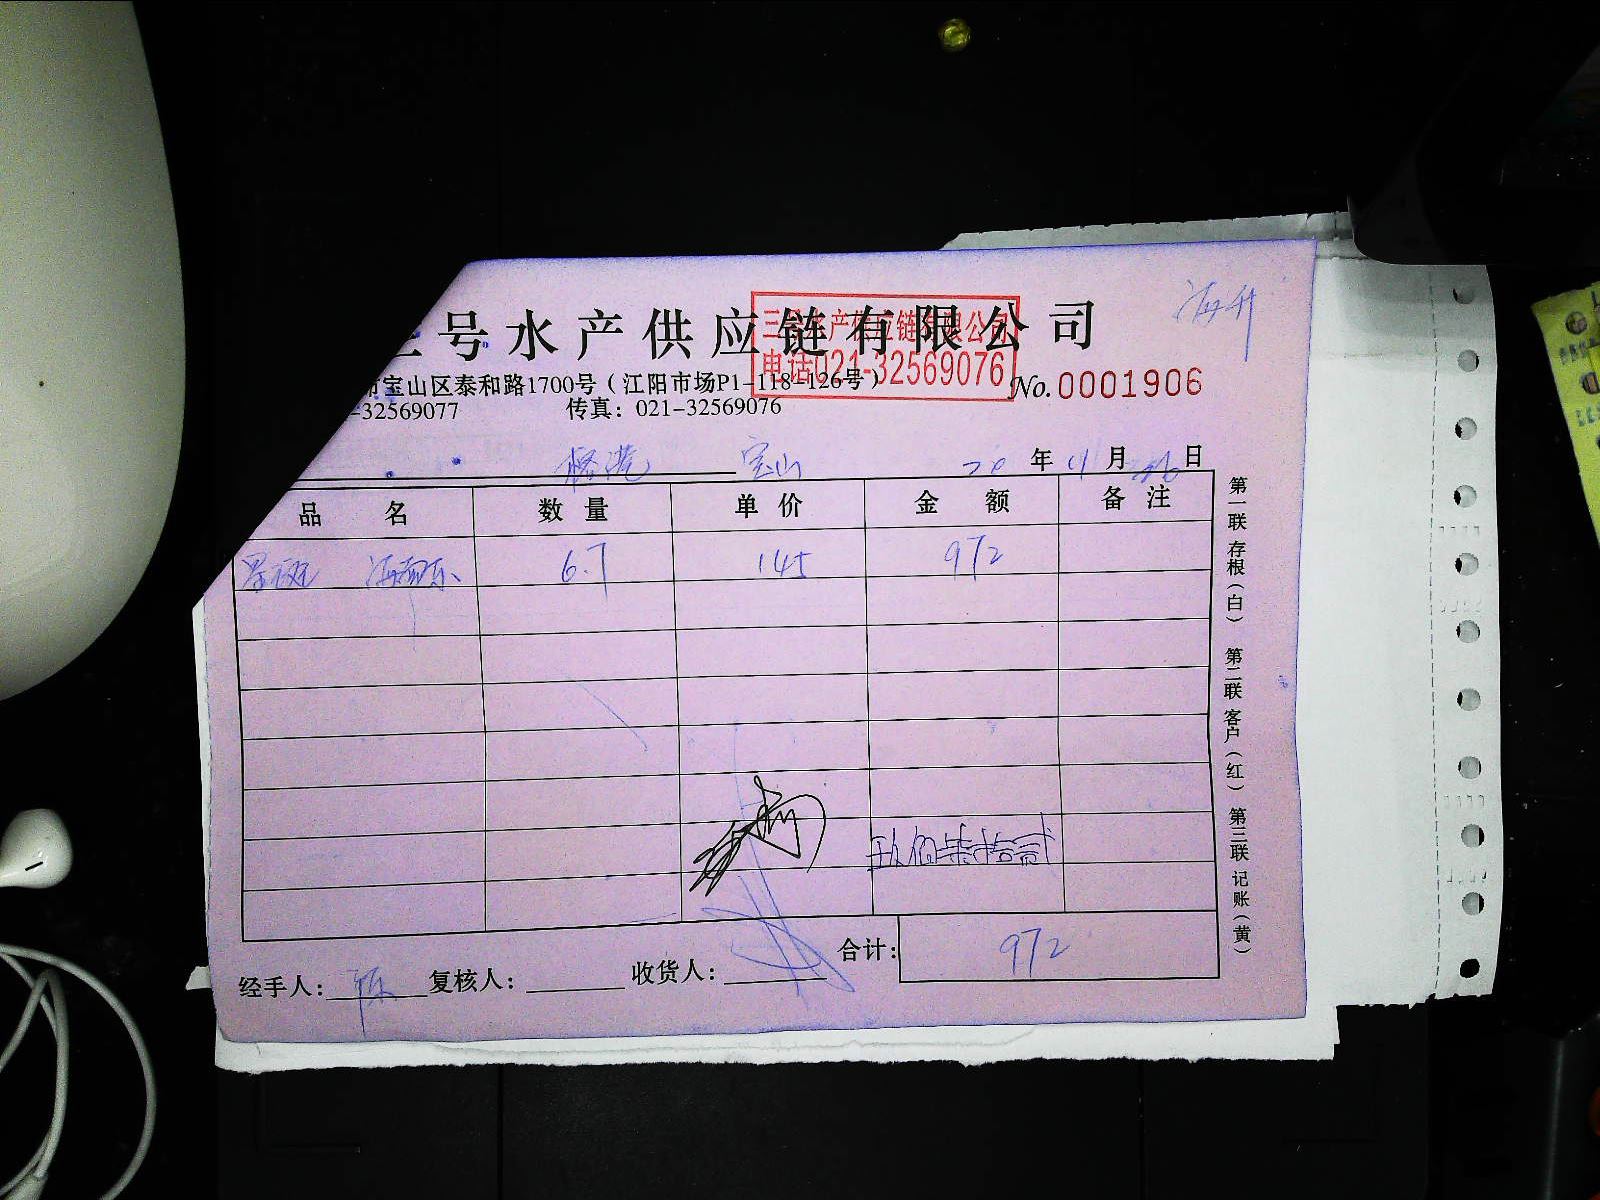 三号水产供应链有限公司
三号水产供应链有限公司
电话021-32569076
市宝山区泰和路1700号（江阳市场P1-118-126号）
-32569077 传真：021-32569076
No.0001906
宝山 20 年 11 月 26 日
品名 数量 单价 金额 备注
6.7 145 972
玖佰柒拾贰
合计：972
经手人： 复核人： 收货人：
第一联 存根（白） 第二联 客户（红） 第三联 记账（黄）